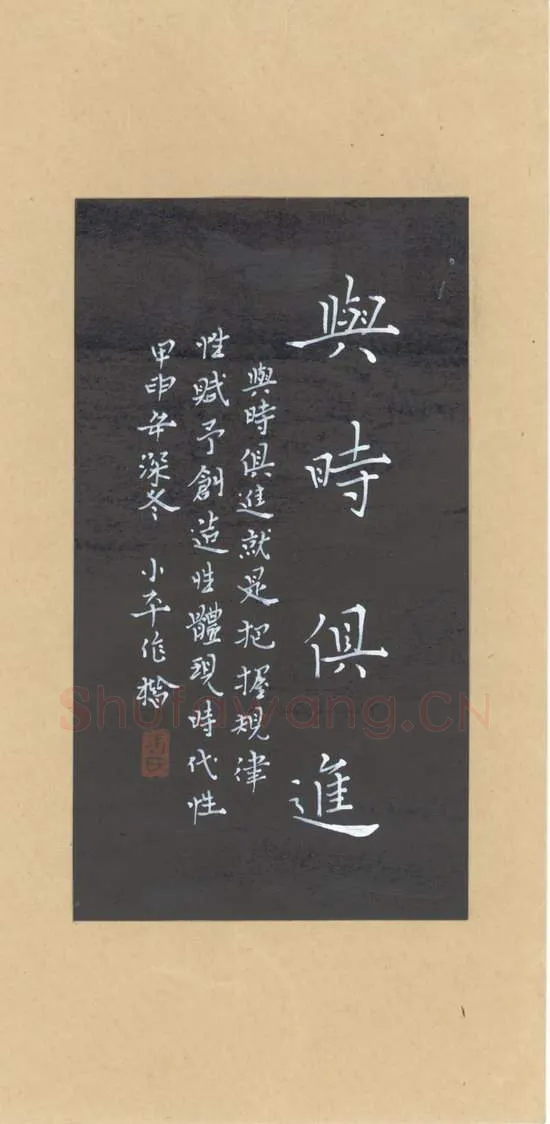 與時俱進
與時俱進就是把握規律
性賦予創造性體現時代性
甲申年深冬 小平作楷
Shufawang.CN